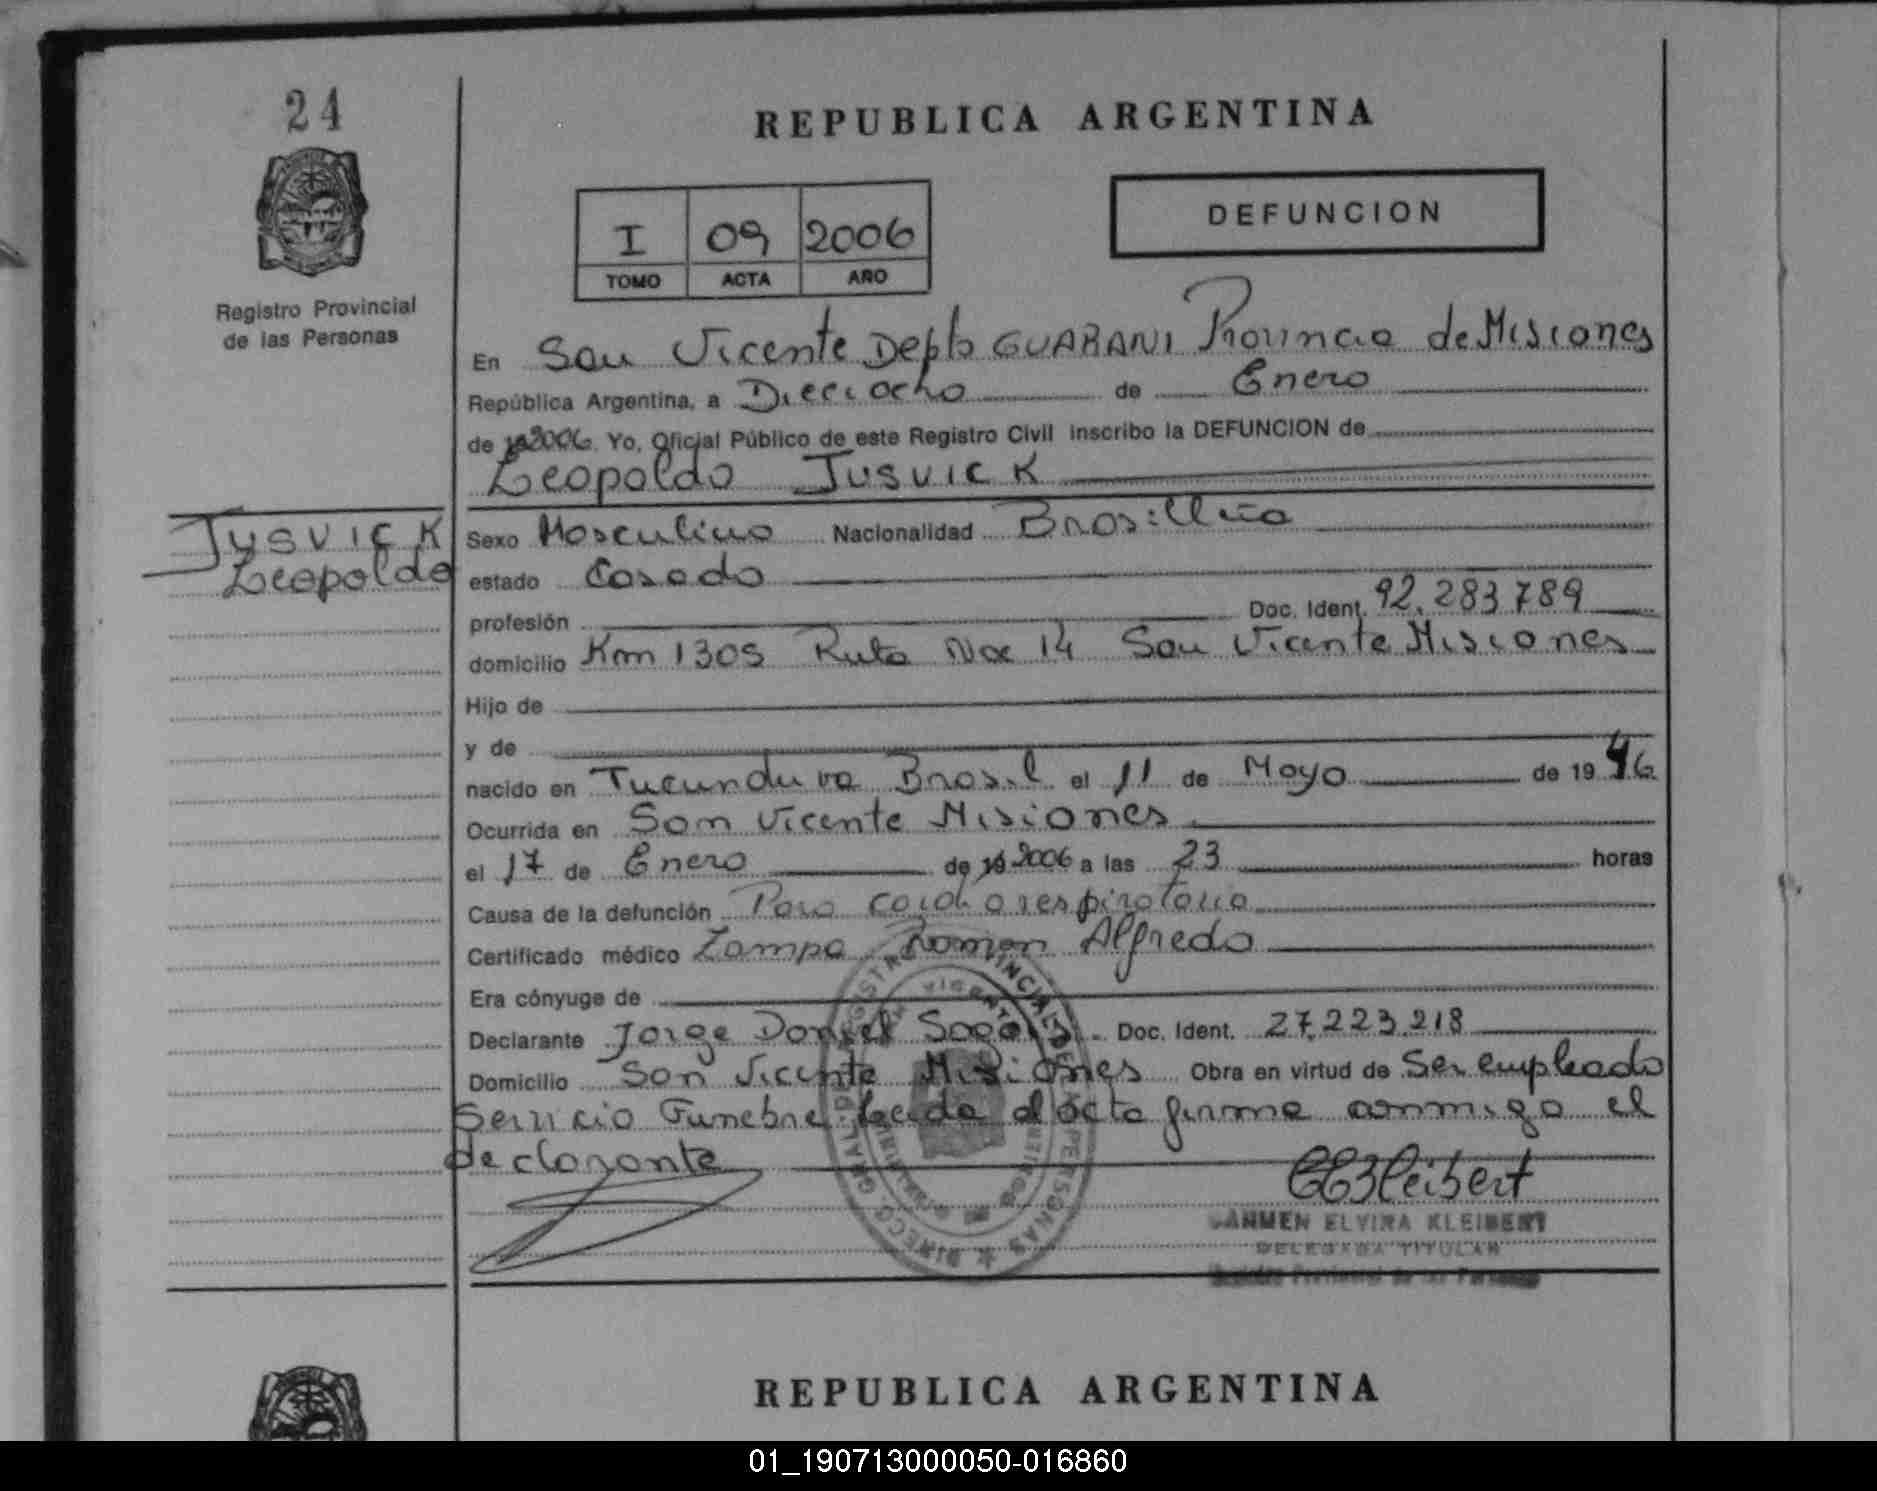 24
REPUBLICA ARGENTINA
DEFUNCION
I 09 2006
TOMO ACTA AÑO
Registro Provincial
de las Personas
En San Vicente Depto GUARANI Provincia de Misiones
República Argentina, a Dieciocho de Enero
de 19 2006. Yo, Oficial Público de este Registro Civil inscribo la DEFUNCION de
Leopoldo JUSVICK
JUSVICK
Leopoldo
Sexo Masculino Nacionalidad Brasileña
estado Casado
profesión Doc. Ident. 92.283.789
domicilio Km 1305 Ruta Nac 14 San Vicente Misiones
Hijo de
y de
nacido en Tucunduva Brasil el 11 de Mayo de 1946
Ocurrida en San Vicente Misiones
el 17 de Enero de 19 2006 a las 23 horas
Causa de la defunción Paro cardiorespiratorio
Certificado médico Zampa Roman Alfredo
Era cónyuge de
Declarante Jorge Daniel Doc. Ident. 27.223.218
Domicilio San Vicente Misiones Obra en virtud de Ser empleado
Servicio Funebre Leida el acta firma conmigo el
declarante
CEKleibert
CARMEN ELVIRA KLEIBERT
DELEGADA TITULAR
Registro Provincial de las Personas
REPUBLICA ARGENTINA
01_190713000050-016860